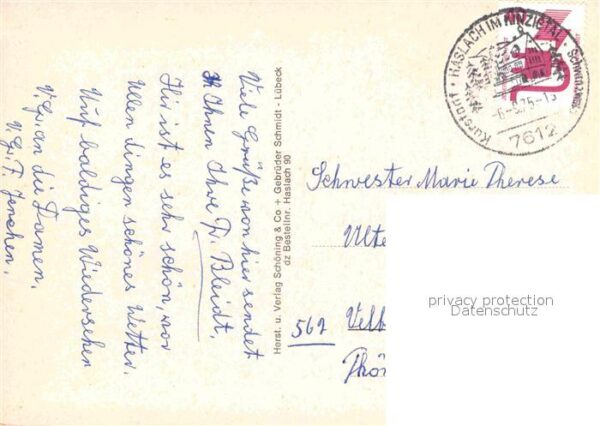 Viele Grüße von hier sendet
Ihnen Ihre Fr. Bleidt.
Hier ist es sehr schön, vor
allen dingen schönes Wetter.
Auf baldiges Wiedersehen
V. G. an die Damen.
V. G. F.
Herst. u. Verlag Schöning & Co + Gebrüder Schmidt - Lübeck
dz Bestellnr. Haslach 90
HASLACH IM KINZIGTAL · Schwarzwald · Kurstadt
-6-8.75-13
7612
Schwester Marie Therese
Alte
562 Velb
Thön
privacy protection
Datenschutz